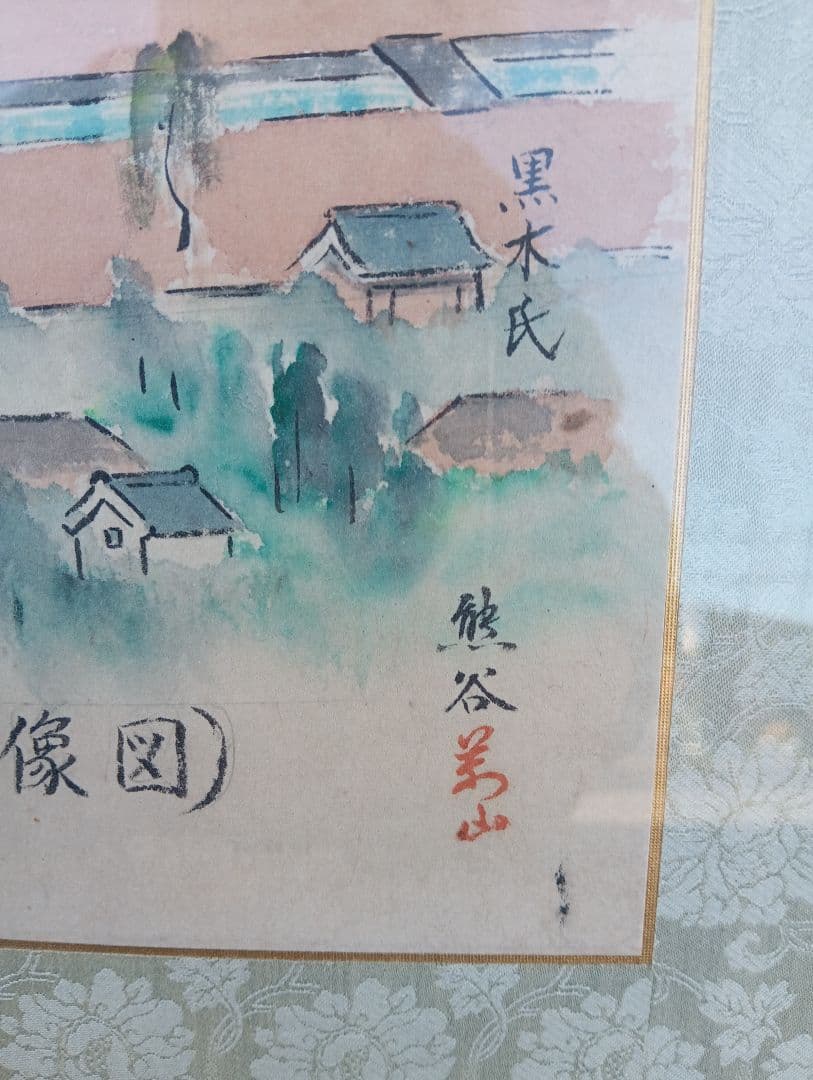 黒木氏
熊谷
像図)